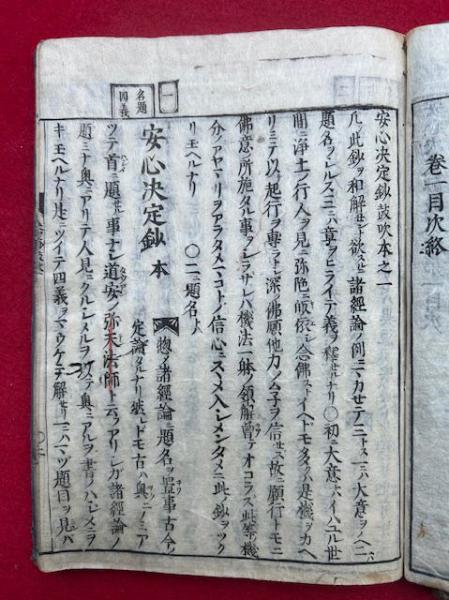 卷一目次終
安心決定鈔鼓吹本之一
凡ソ此鈔ヲ和解セント欲スルニ諸經論ノ例ニマカセテ二トス一ニハ大意ヲノヘ二ニハ
題名ヲトキ三ニハ文章ヲヒライテ義ヲ釋
〇初ニ大意トイハ世
間ニ淨土ノ行人ヲ見ルニ弥陀ニ皈依シ念佛ストイヘドモタヾ是機ヲカヘ
リミテ以テ起行ヲ專ラトシ深ク佛願他力ノ
ヲ信セズ故ニ願行トモニ
佛意ノ所施タル事ヲシラザレバ機法一躰ノ領解曽テオコラズ此等ノ機
ノアヤマリヲアラタメマコトノ信心ニスヽメ入シメンタメニ此ノ鈔ヲツク
リ玉ヘルナリ 〇二ニ題名トハ
一
名題
四義
安心決定鈔 本
惣ノ諸經論ニ題名ヲ置事古今ノ
定論
ナリ
ドモ古ハ奥ニノミア
ツテ首ニ題セル事ナシ道安ノ弥天法師ト云フアリシガ諸經論ノ
題ミナ奥ニアリテ人見ニクルシメルヲ
テ奥ニアルヲ書ノハシメニヲ
キ玉ヘルナリ是ニツイテ四義ヲマウケテ解セリ一ニハマヅ題目ヲ見バ